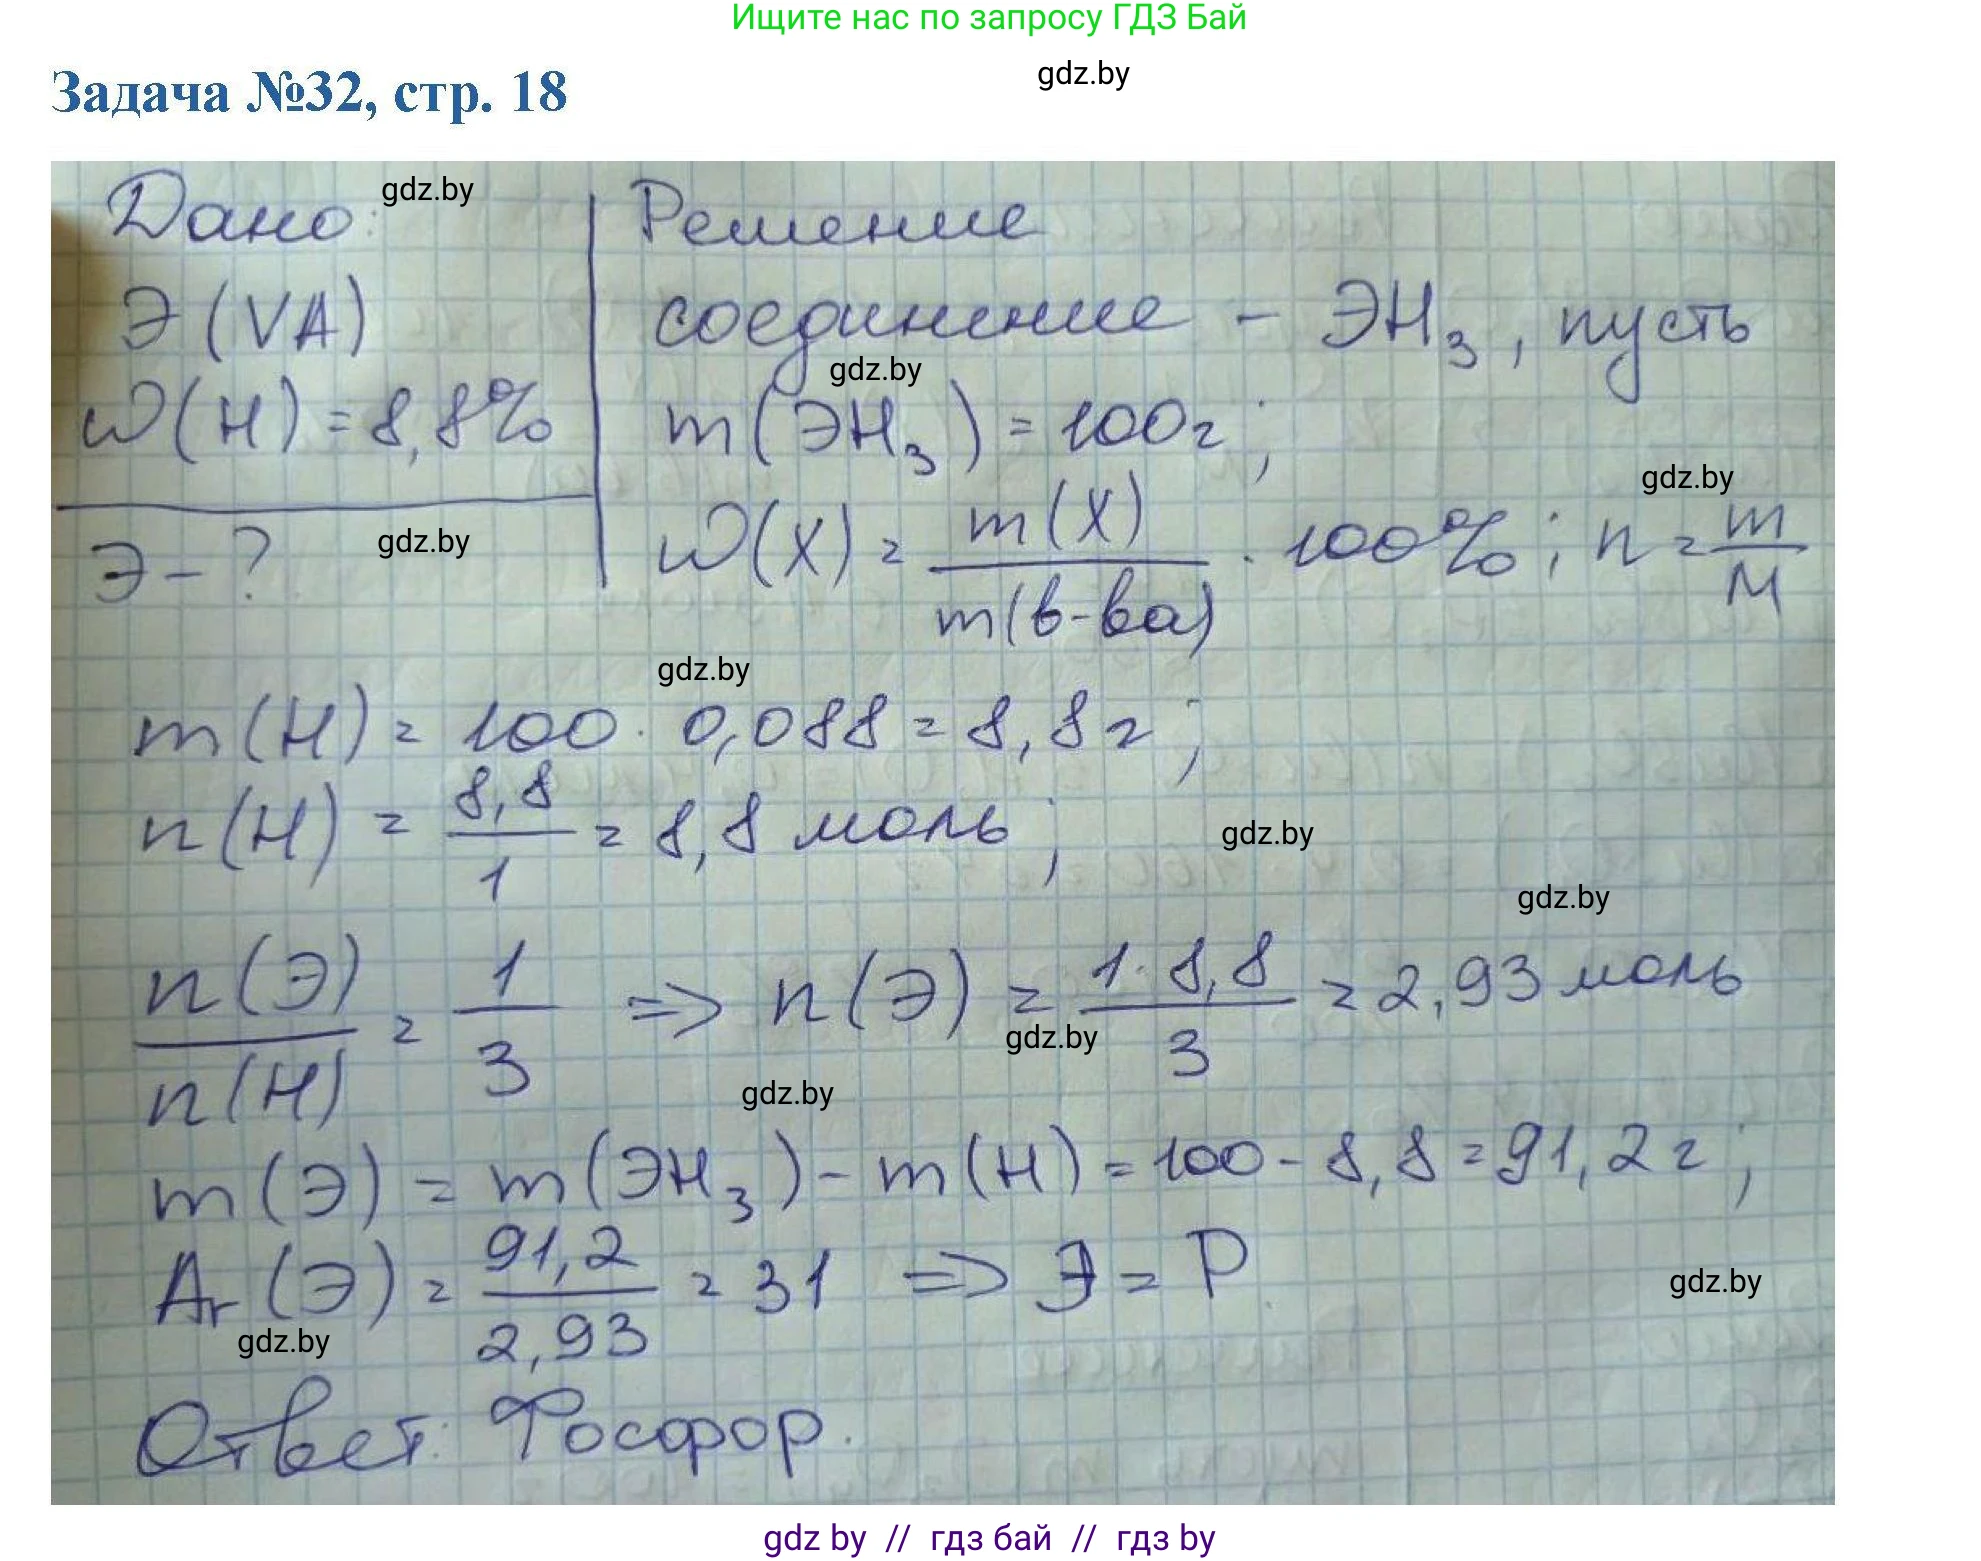 Ищите нас по запросу ГДЗ Бай
gdz.by
Задача №32, стр. 18
Дано: gdz.by
Решение
Э (VA)
соединение - ЭН₃, пусть
gdz.by
w(H) = 8,8%
m(ЭН₃) = 100г;
gdz.by
Э - ? gdz.by
w(X) = m(X) / m(в-ва) · 100%; n = m / M
gdz.by
m(H) = 100 · 0,088 = 8,8 г;
n(H) = 8,8 / 1 = 8,8 моль;
gdz.by
gdz.by
n(Э) / n(H) = 1 / 3 => n(Э) = 1 · 8,8 / 3 = 2,93 моль
gdz.by
gdz.by
m(Э) = m(ЭН₃) - m(H) = 100 - 8,8 = 91,2 г;
Ar(Э) = 91,2 / 2,93 = 31 => Э = P
gdz.by
gdz.by
Ответ: Фосфор.
gdz by // гдз бай // гдз by